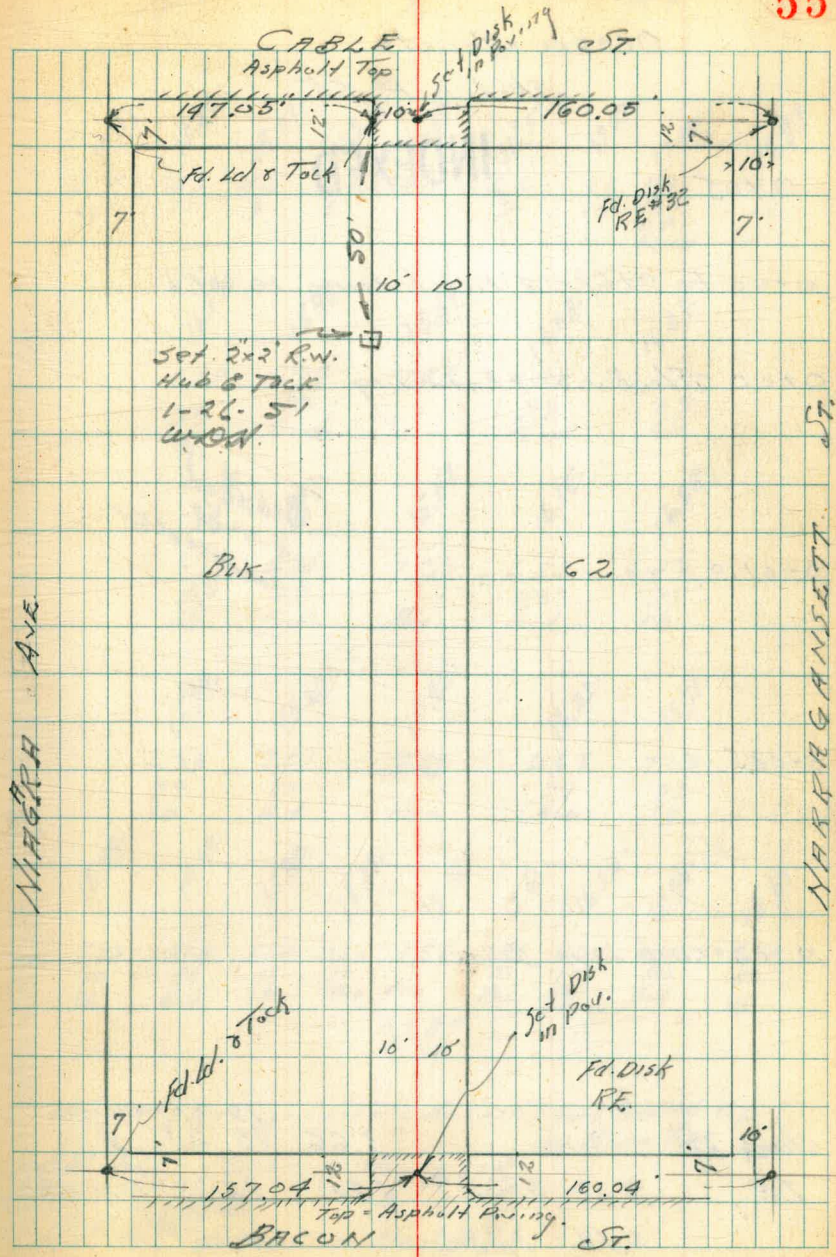 55
CABLE ST.
Asphalt Top
Set Disk
in Paving
147.05' 10' 160.05
7' 12' 12 7'
Fd. Ld & Tack
10'
Fd. Disk
RE #32
7' 7'
50'
10' 10'
Set 2"x2" R.W.
Hub & Tack
1-26-51
BLK. 62
NIAGARA AVE.
NARRAGANSETT ST.
Fd. Ld. & Tack
Set Disk
in Pav.
10' 10'
Fd. Disk
RE.
7' 10'
7' 12 12 7'
157.04 160.04
Top = Asphalt Paving.
BACON ST.